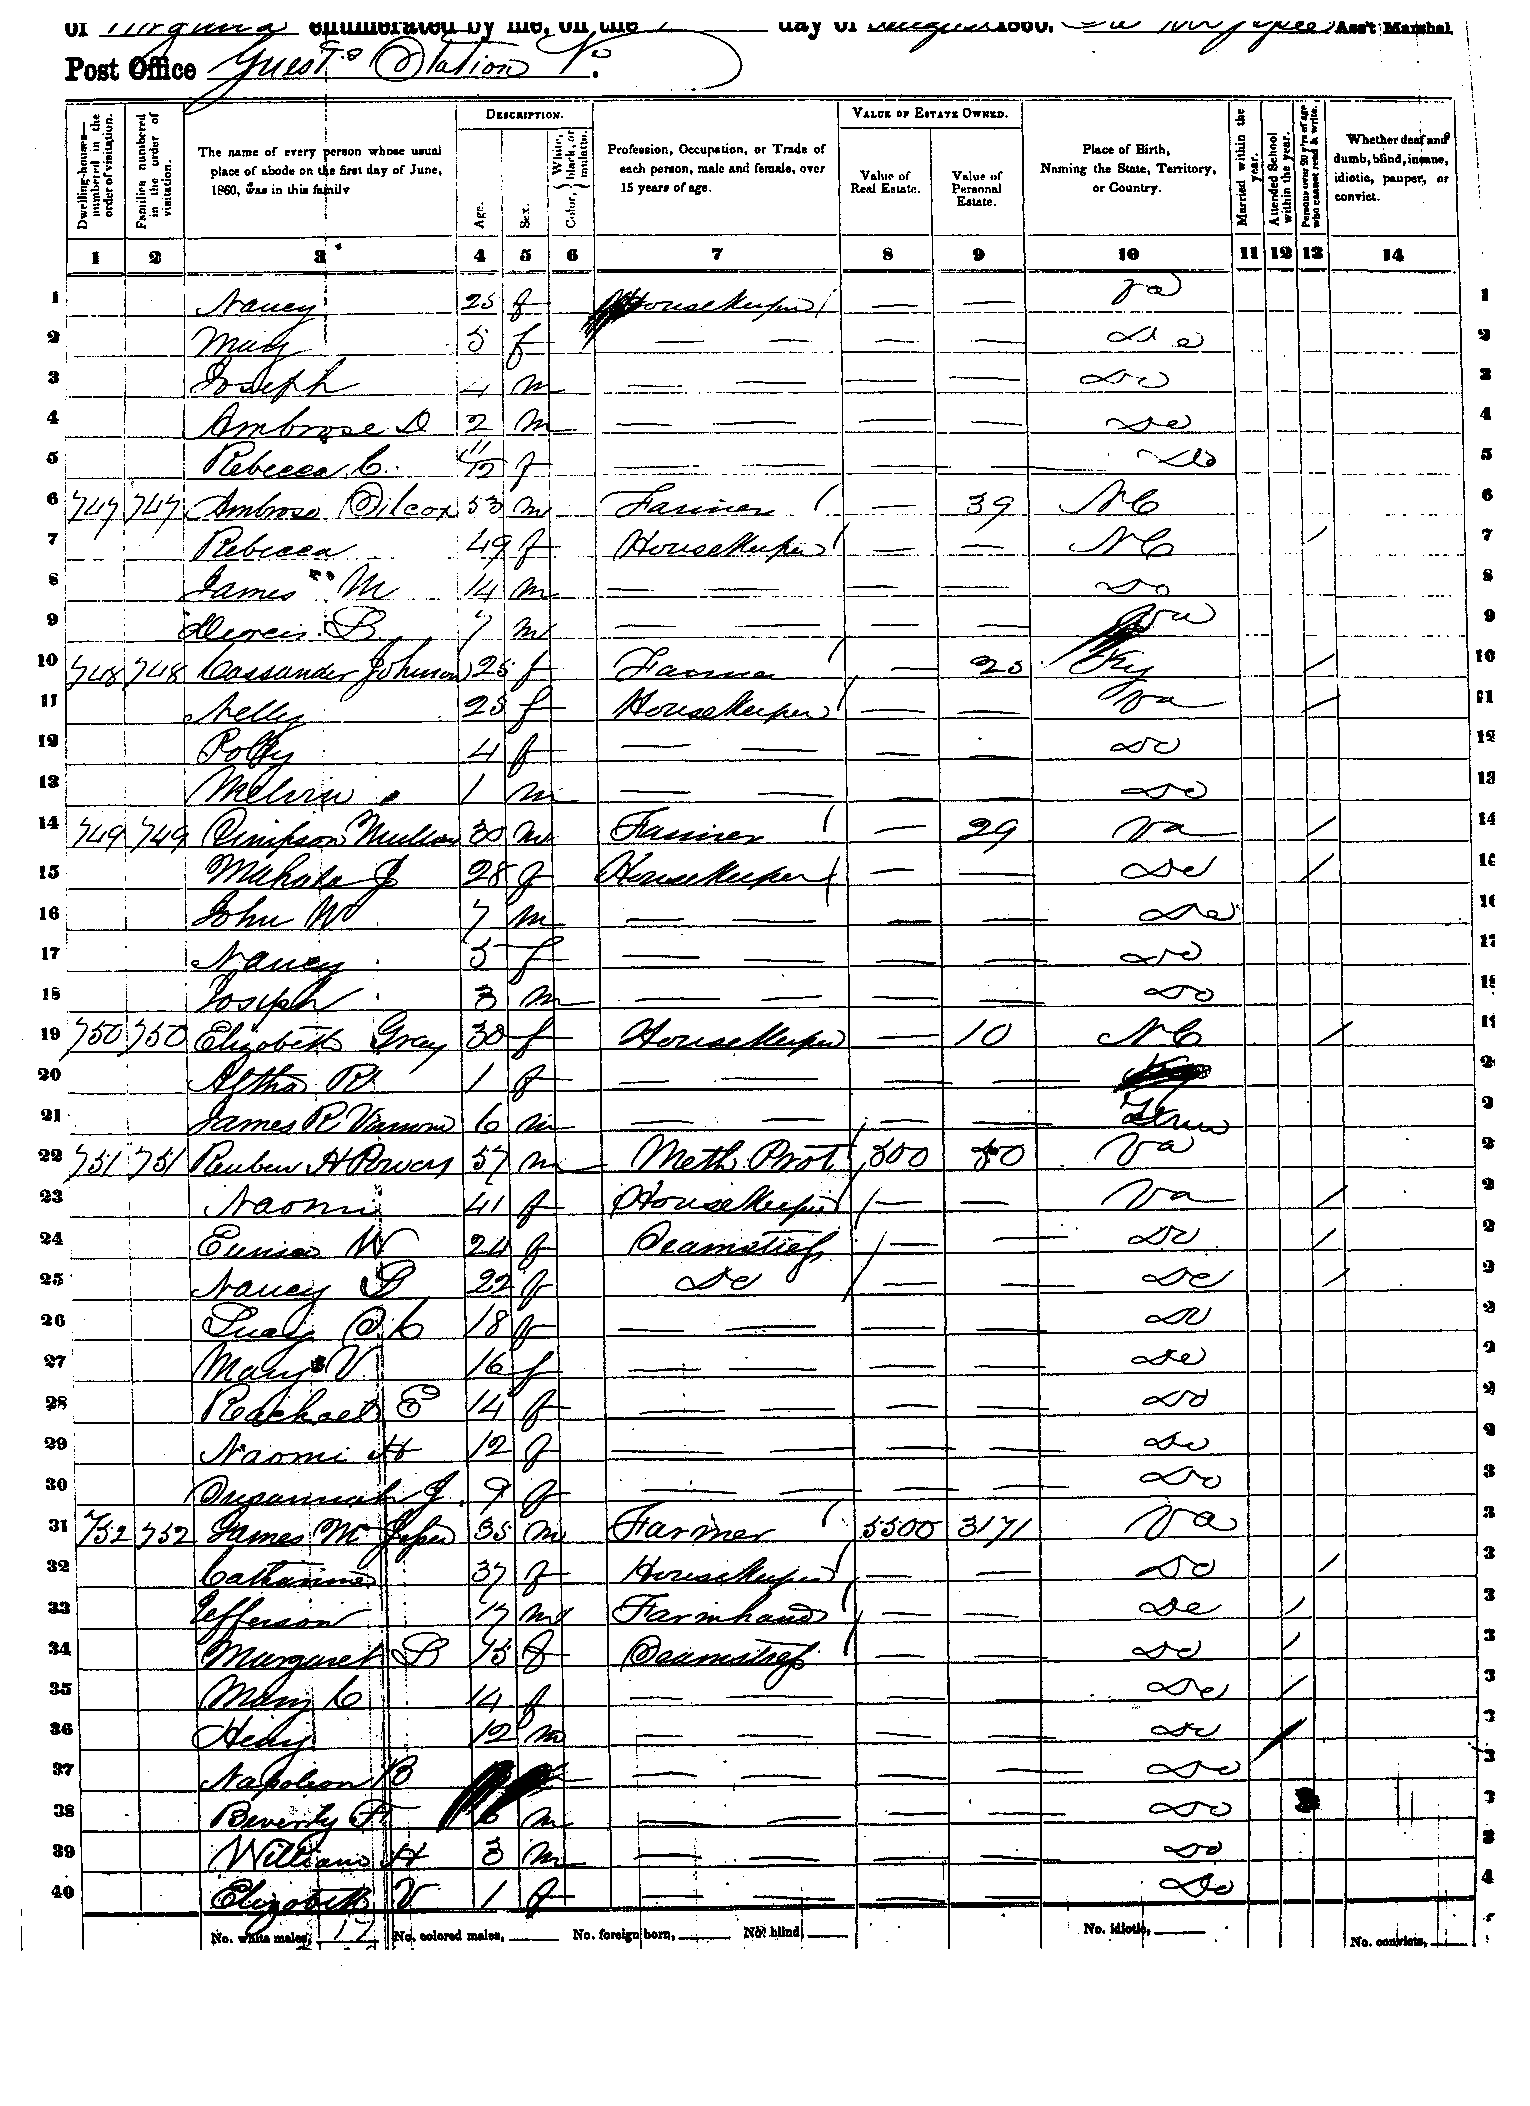 of Virginia enumerated by me, on the day of August 1860. Ass't Marshal
Post Office Guest Station Va.
Dwelling-houses—numbered in the order of visitation.
Families numbered in the order of visitation.
The name of every person whose usual place of abode on the first day of June, 1860, was in this family
Description.
Age.
Sex.
Color, White, black, or mulatto.
Profession, Occupation, or Trade of each person, male and female, over 15 years of age.
Value of Estate Owned.
Value of Real Estate.
Value of Personal Estate.
Place of Birth, Naming the State, Territory, or Country.
Married within the year.
Attended School within the year.
Persons over 20 y'rs of age who cannot read & write.
Whether deaf and dumb, blind, insane, idiotic, pauper, or convict.
1 2 3 4 5 6 7 8 9 10 11 12 13 14
1 Nancy 25 f Housekeeper / — — Va 1
2 Mary 5 f — — — — Do 2
3 Joseph 4 m — — — — Do 3
4 Ambrose D 2 m — — — — Do 4
5 Rebecca C. 11/12 f — — — — Do 5
6 747 747 Ambrose Silcox 53 m Farmer / — 39 NC 6
7 Rebecca 49 f Housekeeper / — — NC / 7
8 James M 14 m — — — — Do 8
9 B 7 m — — — — Va 9
10 748 748 Cassander Johnson 25 f Farmer / — 25 Ky / 10
11 Nelly 25 f Housekeeper / — — Va / 11
12 Polly 4 f — — — — Do 12
13 Melvin 1 m — — — — Do 13
14 749 749 Simpson Mullins 30 m Farmer / — 29 Va / 14
15 Mahala J 28 f Housekeeper / — — Do / 15
16 John W 7 m — — — — Do 16
17 Nancy 5 f — — — — Do 17
18 Joseph 3 m — — — — Do 18
19 750 750 Elizabeth Gray 30 f Housekeeper — 10 NC / 19
20 Altha R 1 f — — — — 2
21 James R 6 m — — — — Tenn 2
22 751 751 Reuben H Powers 57 m Meth. Prot / 300 80 Va 2
23 Naomi 41 f Housekeeper / — — Va / 2
24 Eunice W 24 f Seamstress / — — Do / 2
25 Nancy B 22 f Do / — — Do / 2
26 C 18 f — — — — Do 2
27 Mary V 16 f — — — — Do 2
28 Rachael E 14 f — — — — Do 2
29 Naomi H 12 f — — — — Do 2
30 Susannah J. 9 f — — — — Do 3
31 752 752 James M 35 m Farmer / 5500 3171 Va 3
32 Catharine 37 f Housekeeper / — — Do / 3
33 Jefferson 17 m Farmhand / — — Do / 3
34 Margaret B 15 f Seamstress / — — Do / 3
35 Mary C 14 f — — — — Do / 3
36 Henry 12 m — — — — Do / 3
37 Napoleon B — — — — Do 3
38 Beverly F 6 m — — — — Do 3
39 William H 3 m — — — — Do 3
40 Elizabeth V 1 f — — — — Do 4
No. white males, 17 No. colored males, No. foreign born, No. blind, No. idiotic, No. convicts,